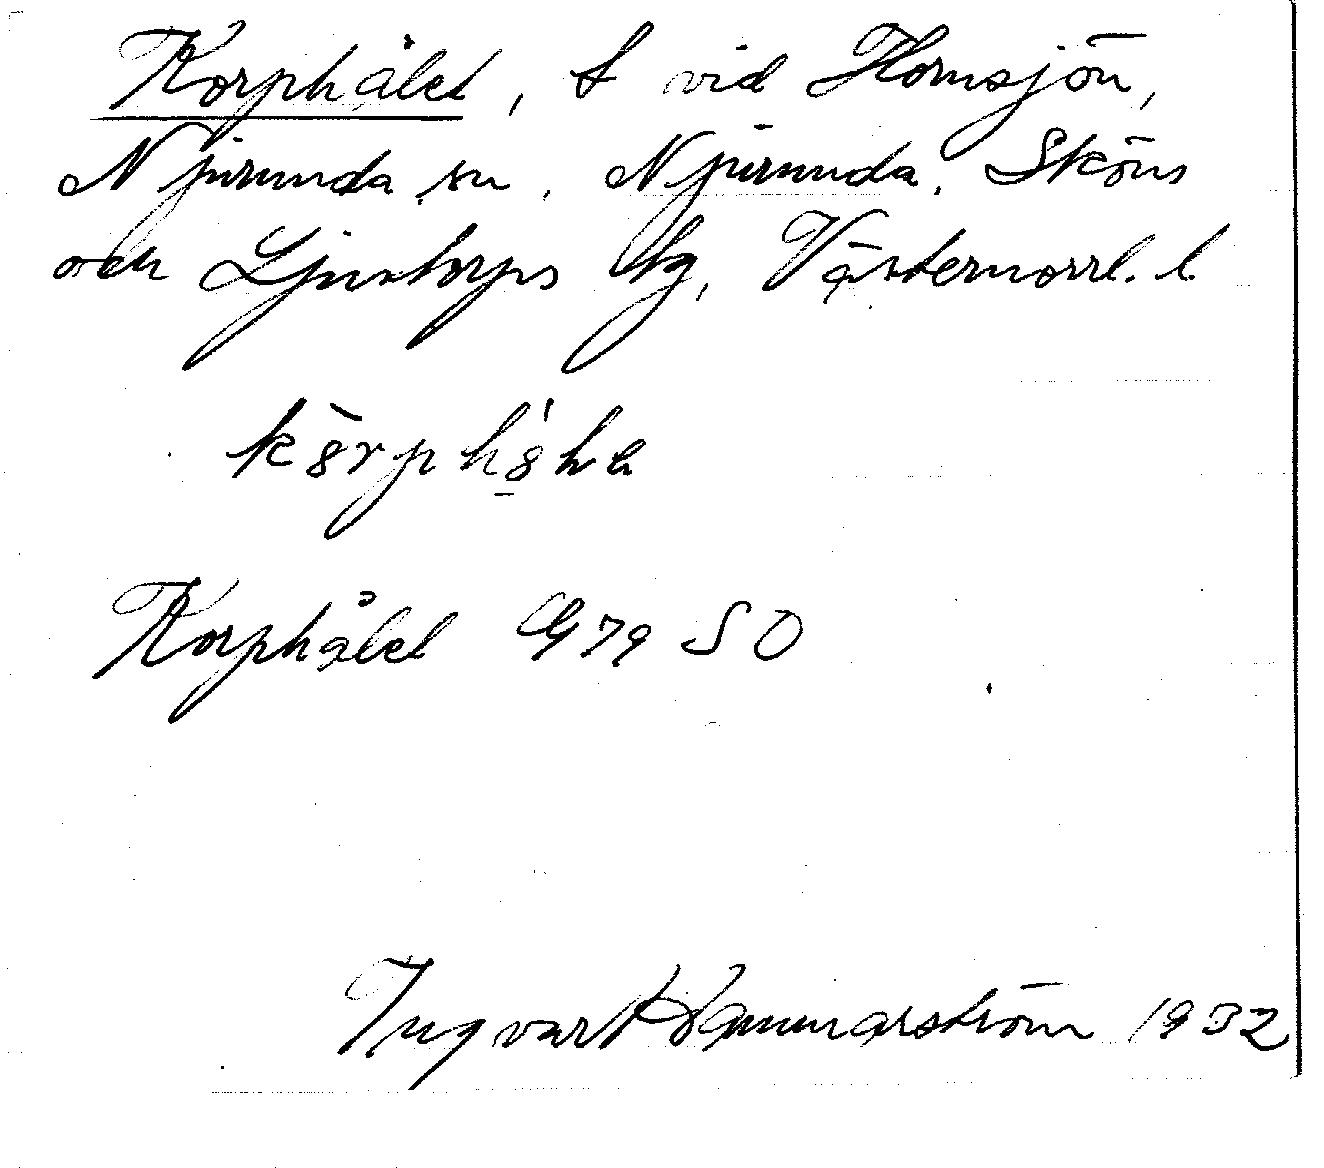 Korphålet, t vid Hornsjön,
Njurunda sn. Njurunda, Sköns
och Ljustorps tg, Västernorrl. l
Korphålet G79 SO
Ingvar Hammarström 1932